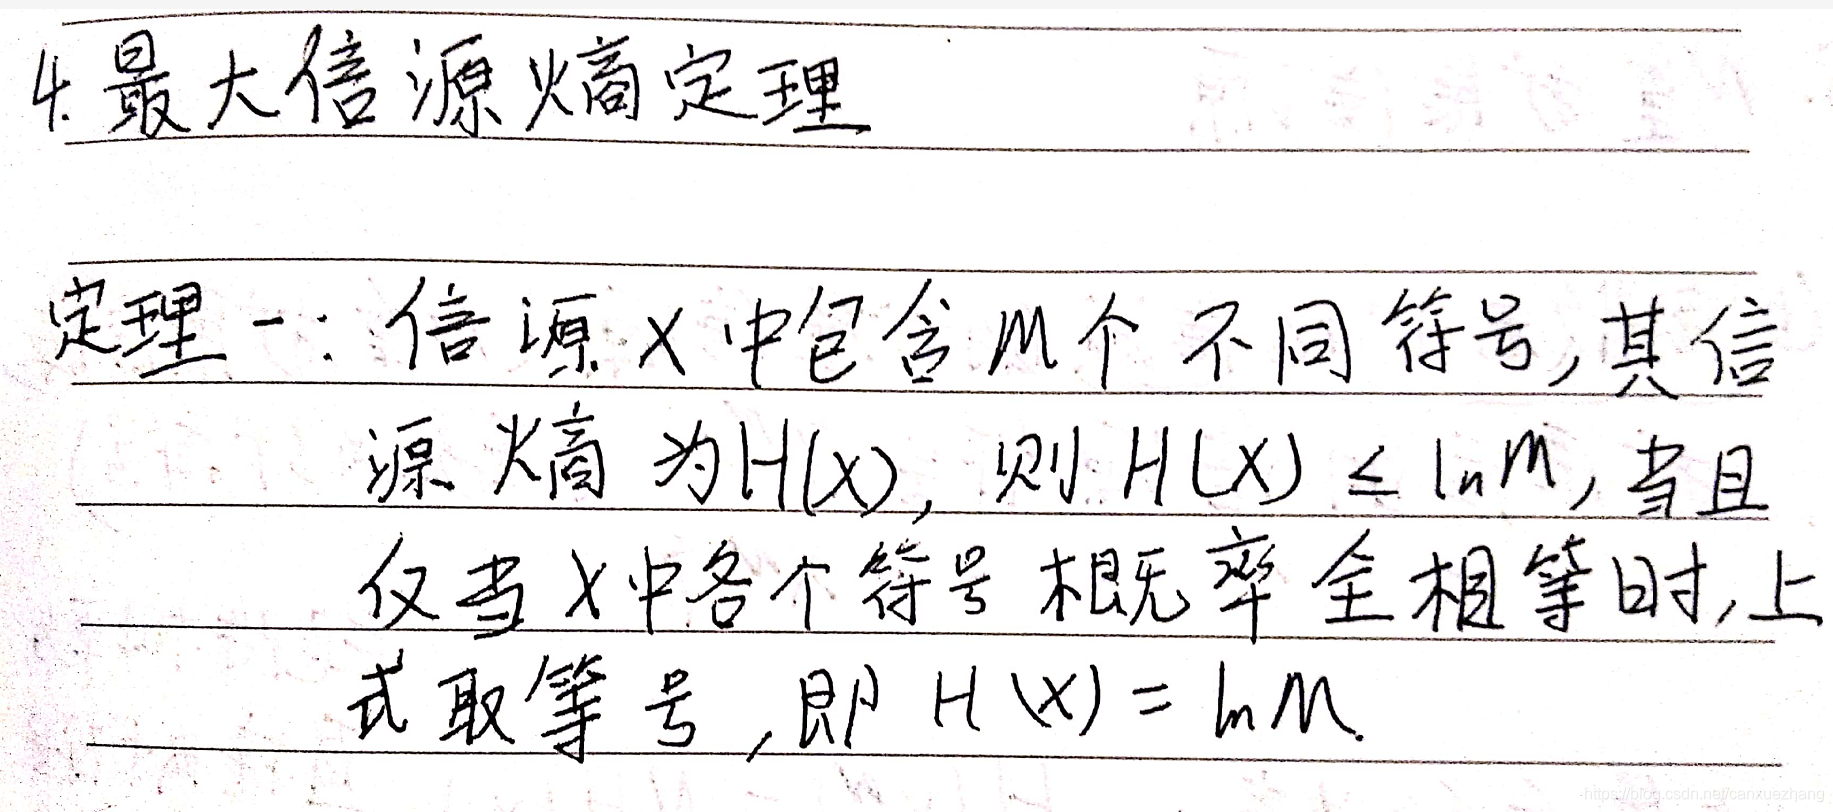 4.最大信源熵定理
定理一:信源X中包含M个不同符号,其信
源熵为H(X),则H(X)≤lnM,当且
仅当X中各个符号概率全相等时,上
式取等号,即H(X)=lnM.
https://blog.csdn.net/canxuezhang